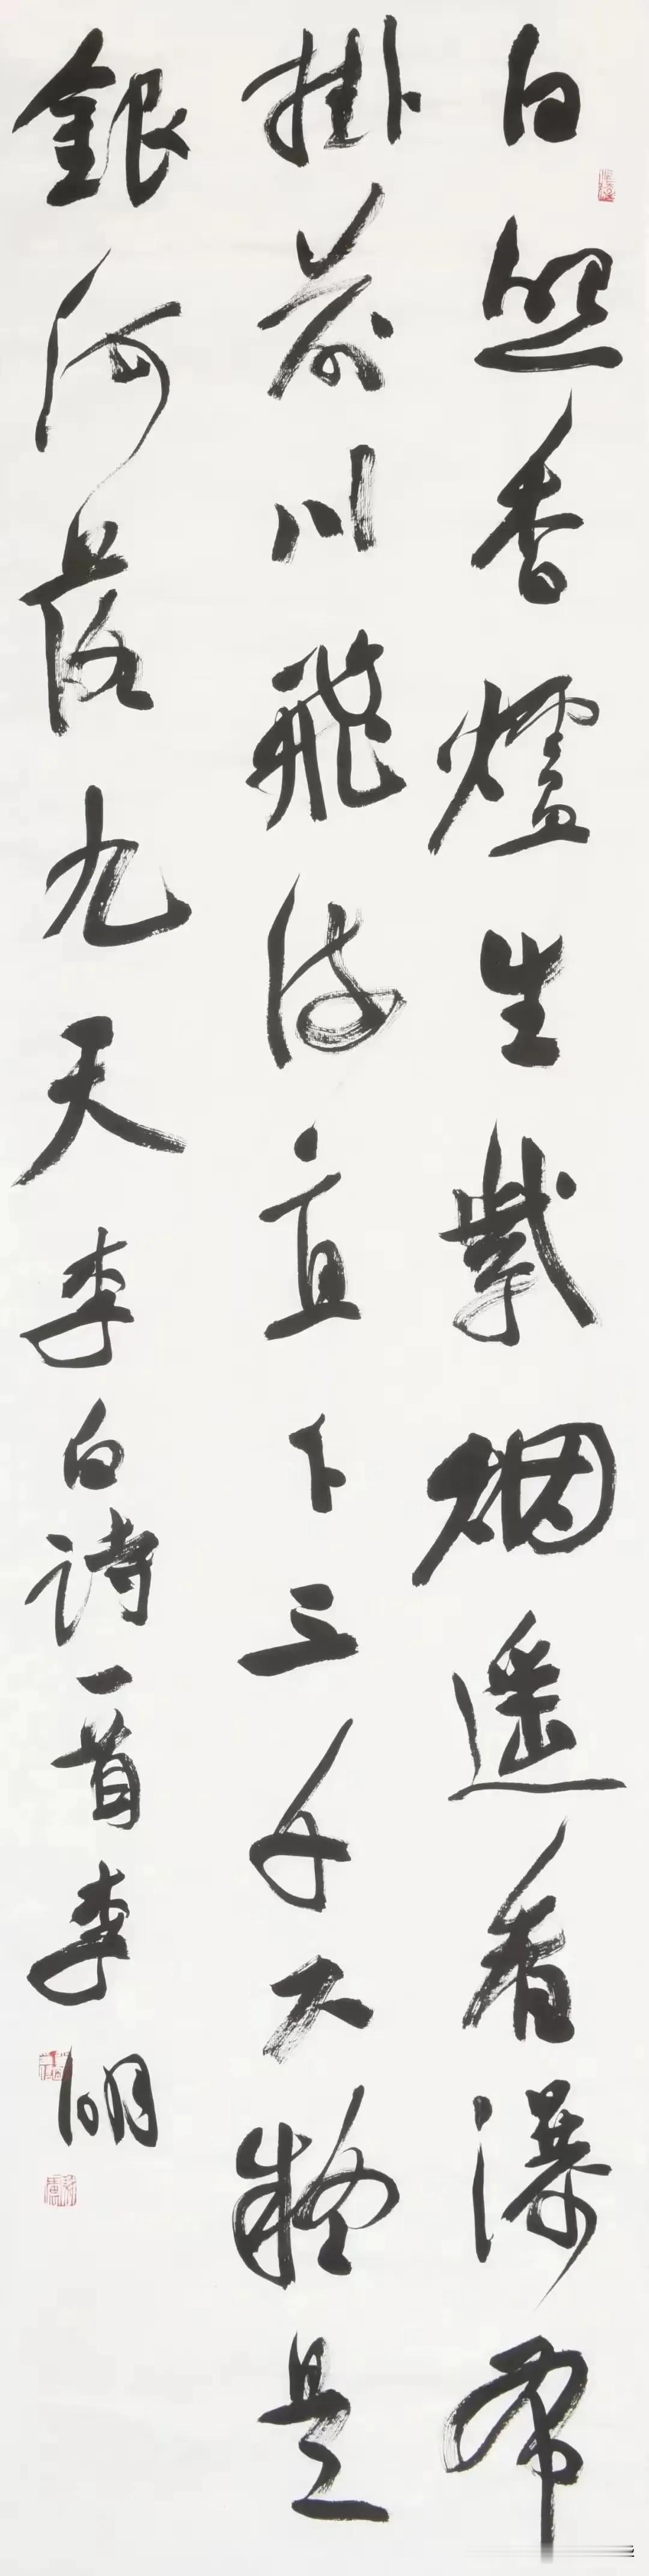 日照香爐生紫烟遥看瀑布
掛前川飛流直下三千尺疑是
銀河落九天李白詩一首李